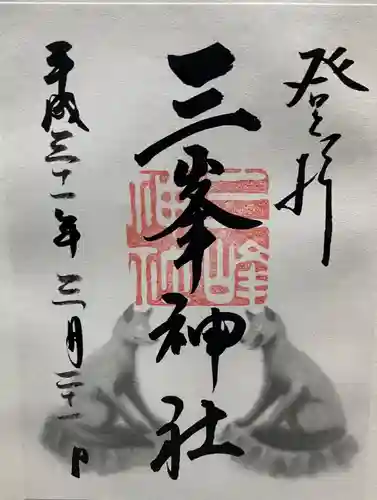 登拝
三峯神社
三峰
神社
平成三十一年三月二十一日